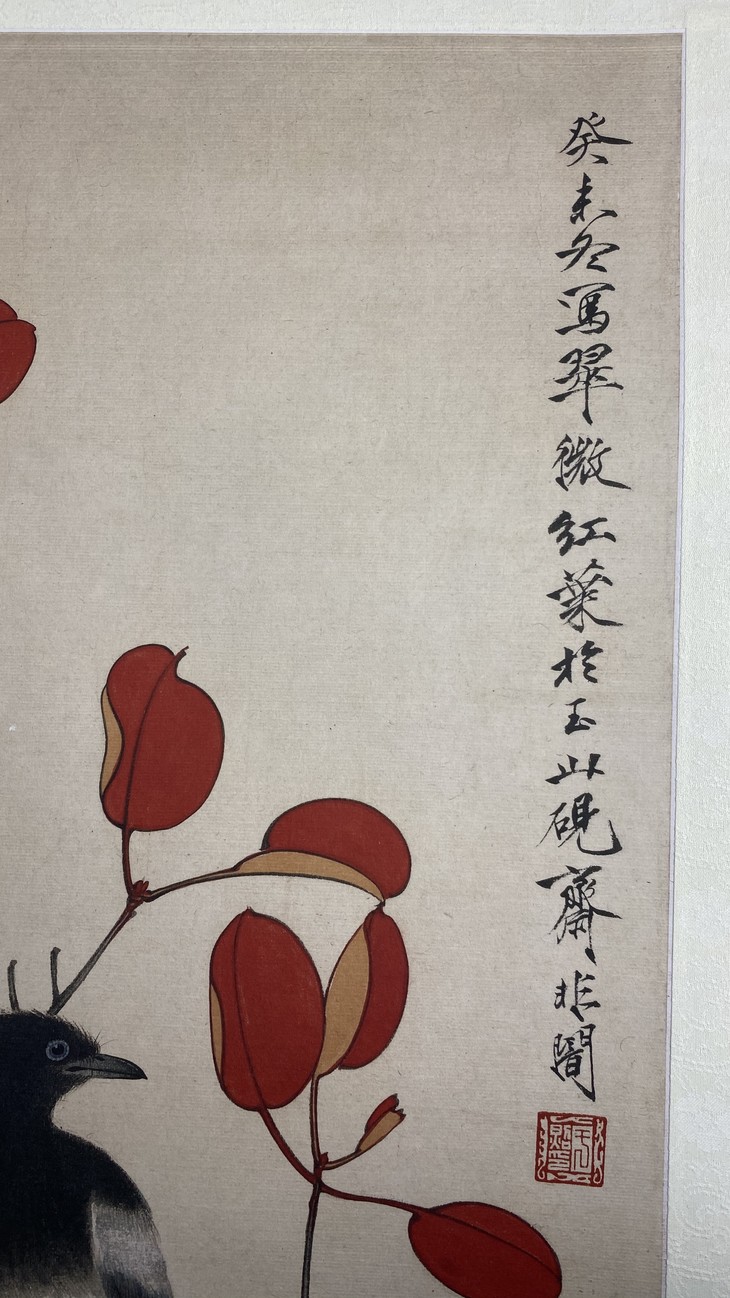 癸未冬寫翠微紅葉於玉山硯齋非闇